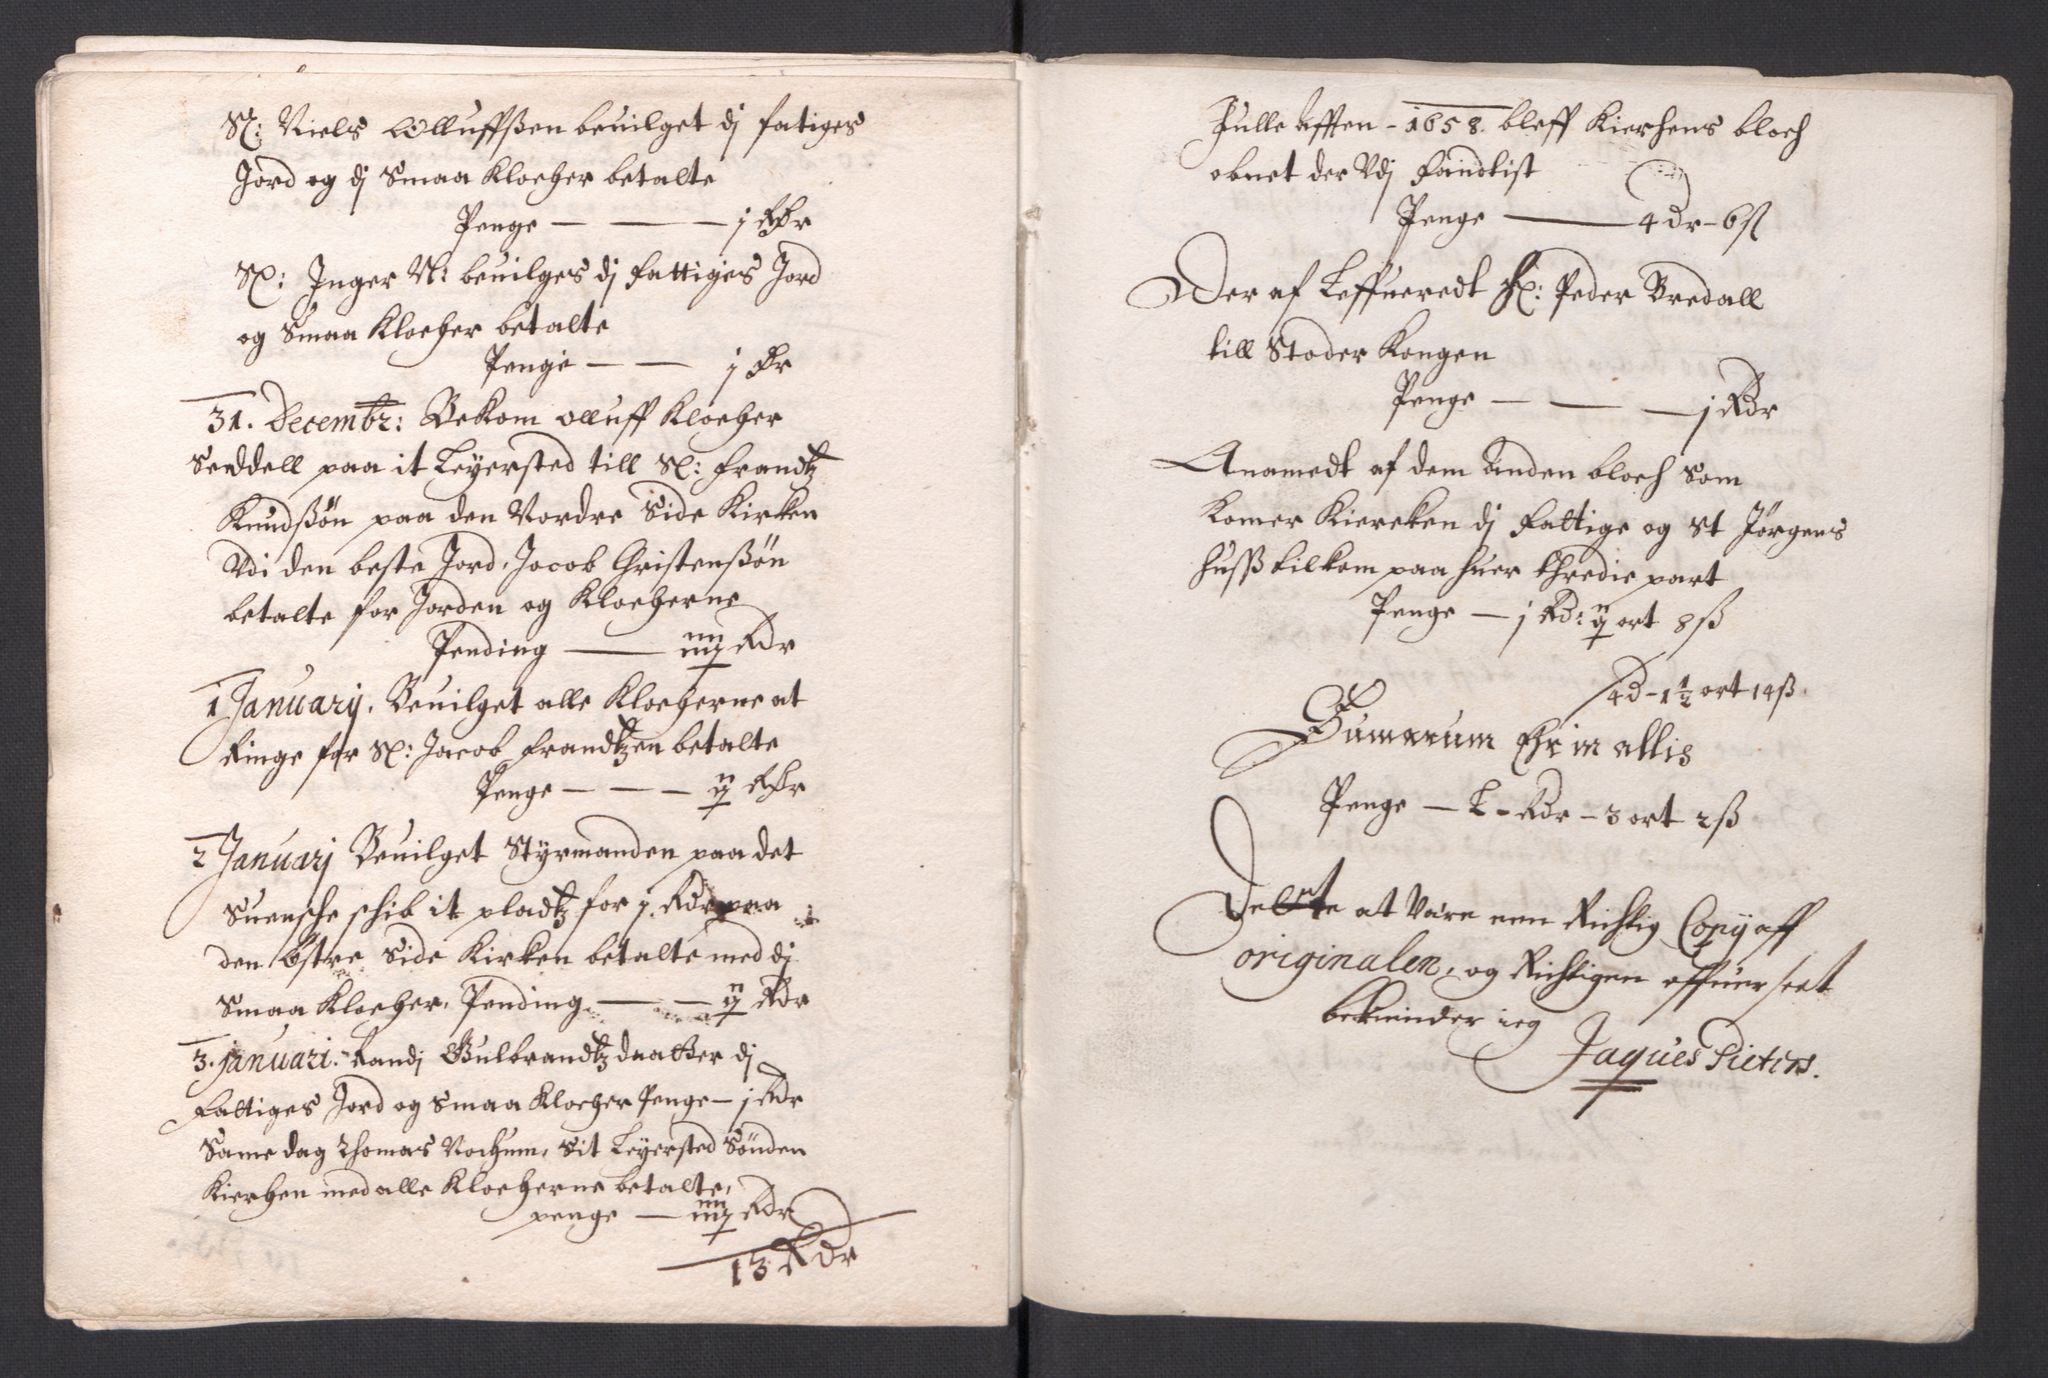 Sl: Niels Olluffßen beuilget dj fatiges
Jord og dj Smaa Klocher betalte
Penge — — — j Rdr
Sl: Inger N: beuilges dj Fattiges Jord
og Smaa Klocher betalte
Penge — — j Dr
31. Decembr: Bekom olluff Klocher
Seddell paa it Leyersted till Sl: Frandtz
Knudßøn paa den Nordre Side Kirken
Vdi den beste Jord, Jacob Christenßøn
betalte for Jorden og Klocherne
Pending — iiij Rdr
1 January. Beuilget alle Klocherne at
Ringe for Sl: Jacob Frandtzen betalte
Penge — — — ij Rdr
2 Januarj Beuilget Styrmanden paa det
Suensche schib it pladtz for j Rdr paa
den Østre Side Kirken betalte med dj
Smaa Klocher. Pending — — ij Rdr
3. januari. Randj Gulbrandtzdaatter dj
Fattiges Jord og Smaa Klocher Penge — j Rdr
Same dag Thomas Nochum, Sit Leyersted Sønden
Kierchen med alle Klocherne betalte,
penge — iiij Rdr
13 Rdr
Julle Afften - 1658. bleff Kierchens bloch
obnet der Vdj Fandtist
Penge — 4 dr - 6 ß
Der af Leffueredt Hl: Peder Bredall
till Stoder Kongen
Penge — — — j Rdr
Anamedt af dem Anden bloch Som
Komer Kiereken dj Fattige og St Jørgens
Hußß tilkom paa huer thredie part
Penge — j Rd: ij ort 8 ß
4d - 1 1/2 ort 14 ß.
Sumarum Ehr in allis
Penge — L - Rdr - 3 ort 2 ß
Dette at Være enn Richtig Copy aff
originalen, og Richtigen offuer seet
bekiender ieg
Jaques Pieters.